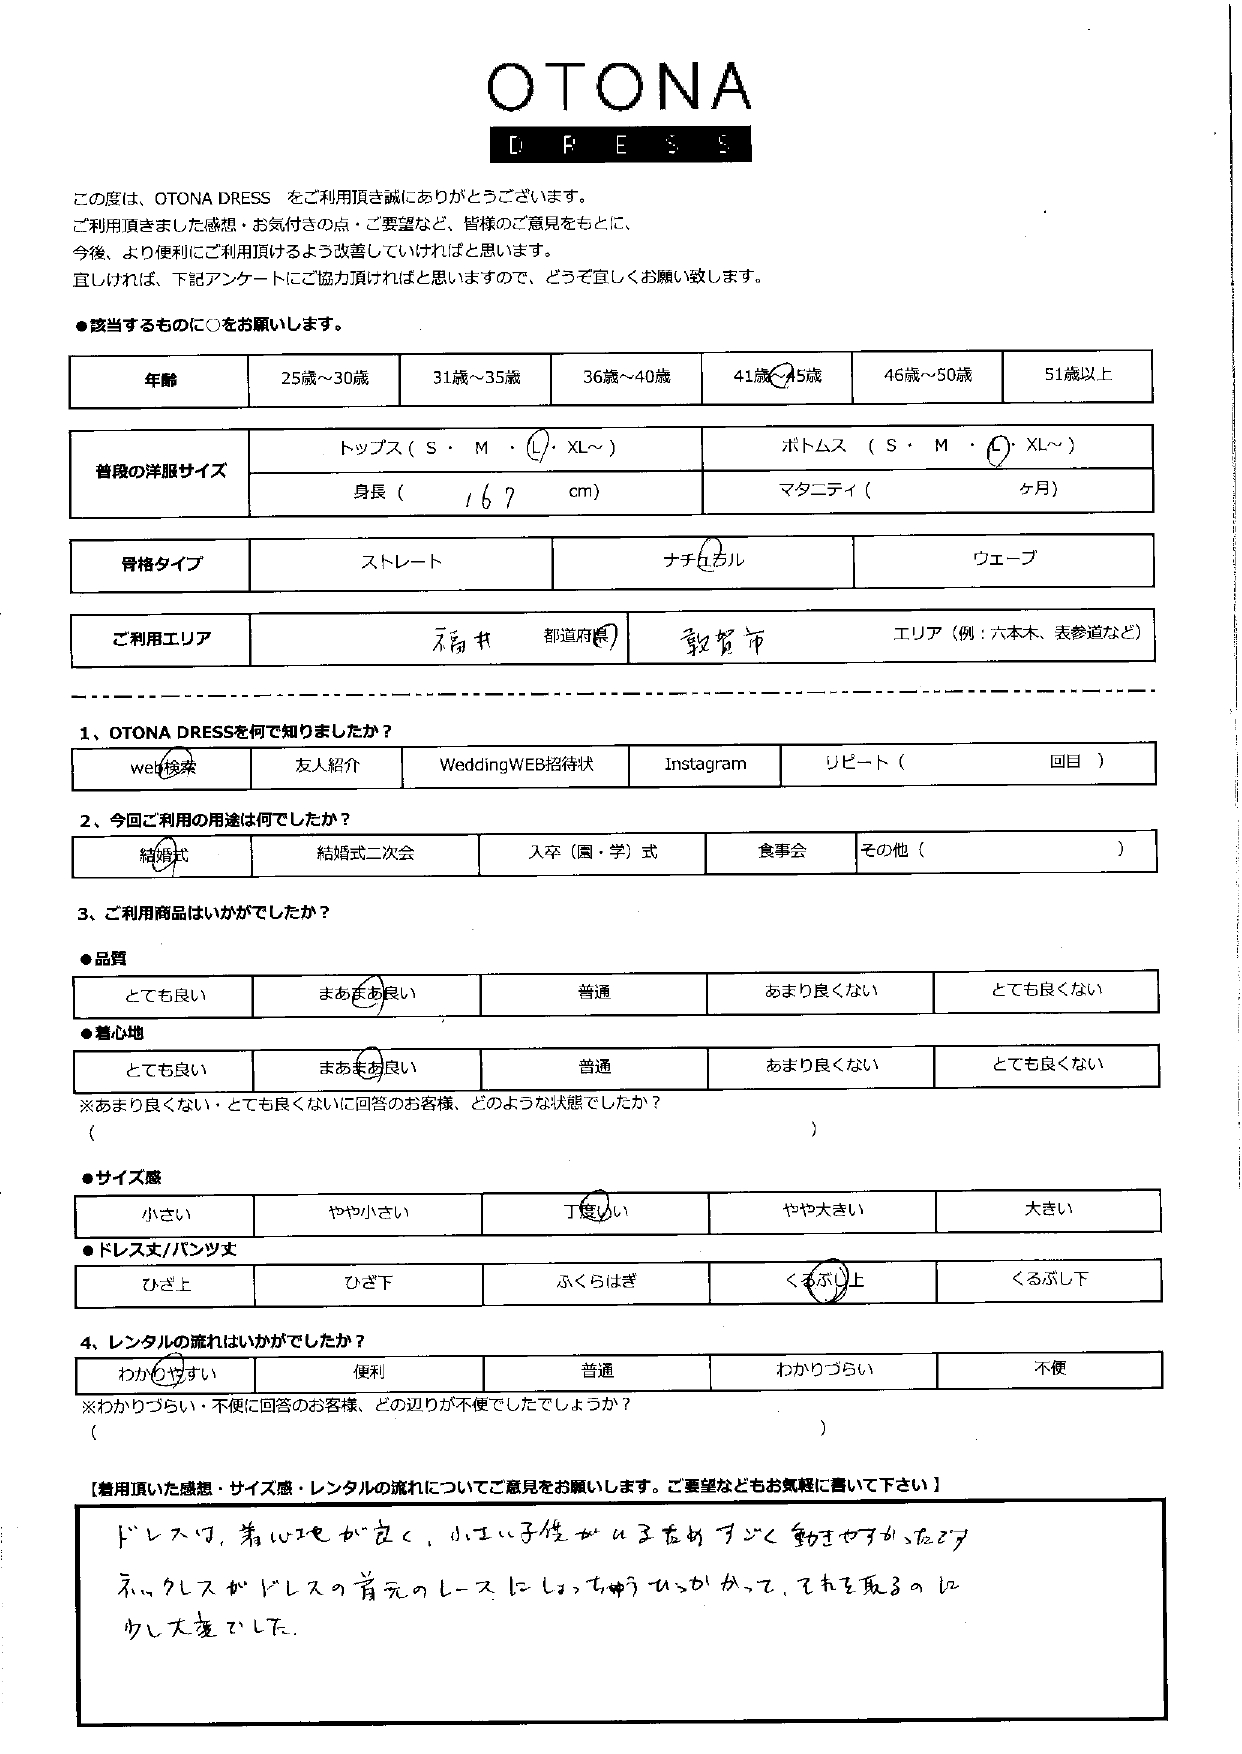 OTONA
DRESS
この度は、OTONA DRESS をご利用頂き誠にありがとうございます。
ご利用頂きました感想・お気付きの点・ご要望など、皆様のご意見をもとに、
今後、より便利にご利用頂けるよう改善していければと思います。
宜しければ、下記アンケートにご協力頂ければと思いますので、どうぞ宜しくお願い致します。
●該当するものに○をお願いします。
年齢 25歳～30歳 31歳～35歳 36歳～40歳 41歳～45歳 46歳～50歳 51歳以上
普段の洋服サイズ トップス ( S ・ M ・ L ・ XL～ ) ボトムス ( S ・ M ・ L ・ XL～ )
身長 ( 167 cm) マタニティ ( ヶ月)
骨格タイプ ストレート ナチュラル ウェーブ
ご利用エリア 福井 都道府県 敦賀市 エリア（例：六本木、表参道など）
1、OTONA DRESSを何で知りましたか？
web検索 友人紹介 WeddingWEB招待状 Instagram リピート ( 回目 )
2、今回ご利用の用途は何でしたか？
結婚式 結婚式二次会 入卒（園・学）式 食事会 その他 ( )
3、ご利用商品はいかがでしたか？
●品質
とても良い まあまあ良い 普通 あまり良くない とても良くない
●着心地
とても良い まあまあ良い 普通 あまり良くない とても良くない
※あまり良くない・とても良くないに回答のお客様、どのような状態でしたか？
( )
●サイズ感
小さい やや小さい 丁度いい やや大きい 大きい
●ドレス丈/パンツ丈
ひざ上 ひざ下 ふくらはぎ くるぶし上 くるぶし下
4、レンタルの流れはいかがでしたか？
わかりやすい 便利 普通 わかりづらい 不便
※わかりづらい・不便に回答のお客様、どの辺りが不便でしたでしょうか？
( )
【着用頂いた感想・サイズ感・レンタルの流れについてご意見をお願いします。ご要望などもお気軽に書いて下さい】
ドレスは、着心地が良く、小さい子供がいるためすごく動きやすかったです
ネックレスがドレスの首元のレースにしょっちゅうひっかかって、それを取るのに
少し大変でした.